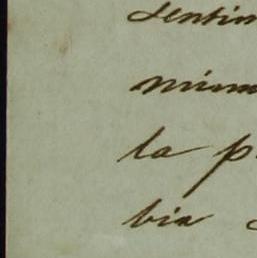 sentim
mism
la p
bia